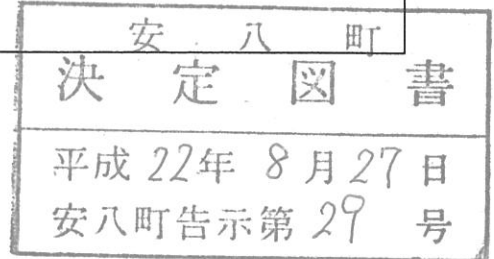 安八町
決定図書
平成22年8月27日
安八町告示第29号